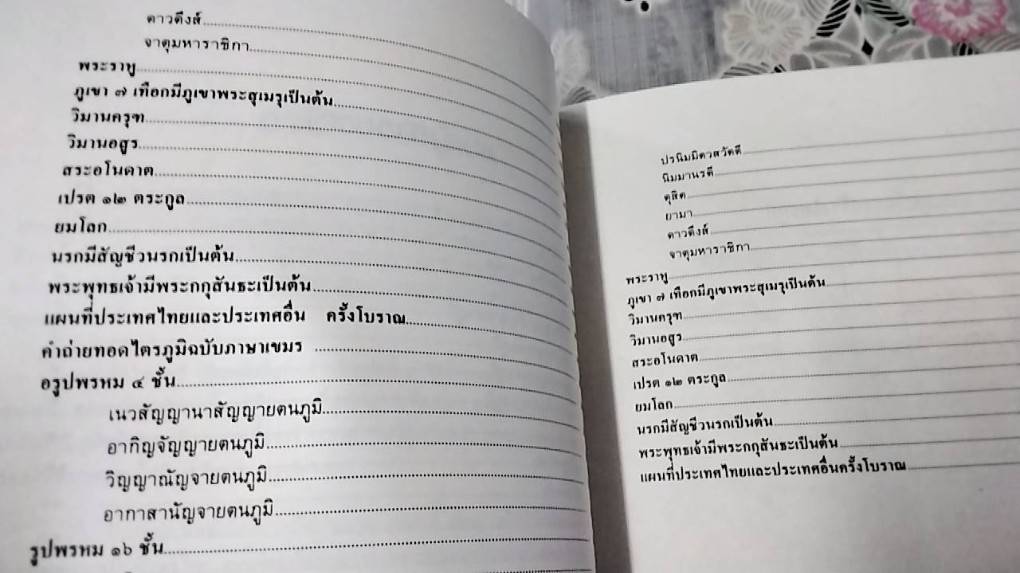 ดาวดึงส์
จาตุมหาราชิกา
พระราหู
ภูเขา ๗ เทือกมีภูเขาพระสุเมรุเป็นต้น
วิมานครุฑ
วิมานอสูร
สระอโนดาต
เปรต ๑๒ ตระกูล
ยมโลก
นรกมีสัญชีวนรกเป็นต้น
พระพุทธเจ้ามีพระกกุสันธะเป็นต้น
แผนที่ประเทศไทยและประเทศอื่น ครั้งโบราณ
คำถ่ายทอดไตรภูมิฉบับภาษาเขมร
อรูปพรหม ๔ ชั้น
เนวสัญญานาสัญญายตนภูมิ
อากิญจัญญายตนภูมิ
วิญญาณัญจายตนภูมิ
อากาสานัญจายตนภูมิ
รูปพรหม ๑๖ ชั้น
ปรนิมมิตวสวัตดี
นิมมานรดี
ดุสิต
ยามา
ดาวดึงส์
จาตุมหาราชิกา
พระราหู
ภูเขา ๗ เทือกมีภูเขาพระสุเมรุเป็นต้น
วิมานครุฑ
วิมานอสูร
สระอโนดาต
เปรต ๑๒ ตระกูล
ยมโลก
นรกมีสัญชีวนรกเป็นต้น
พระพุทธเจ้ามีพระกกุสันธะเป็นต้น
แผนที่ประเทศไทยและประเทศอื่นครั้งโบราณ